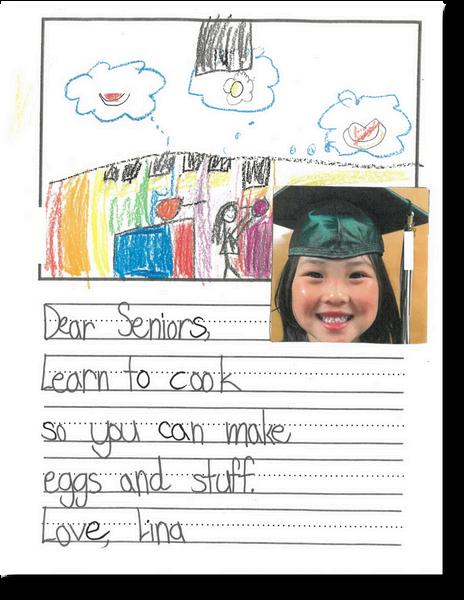 Dear Seniors,
Learn to cook
so you can make
eggs and stuff.
Love, Lina